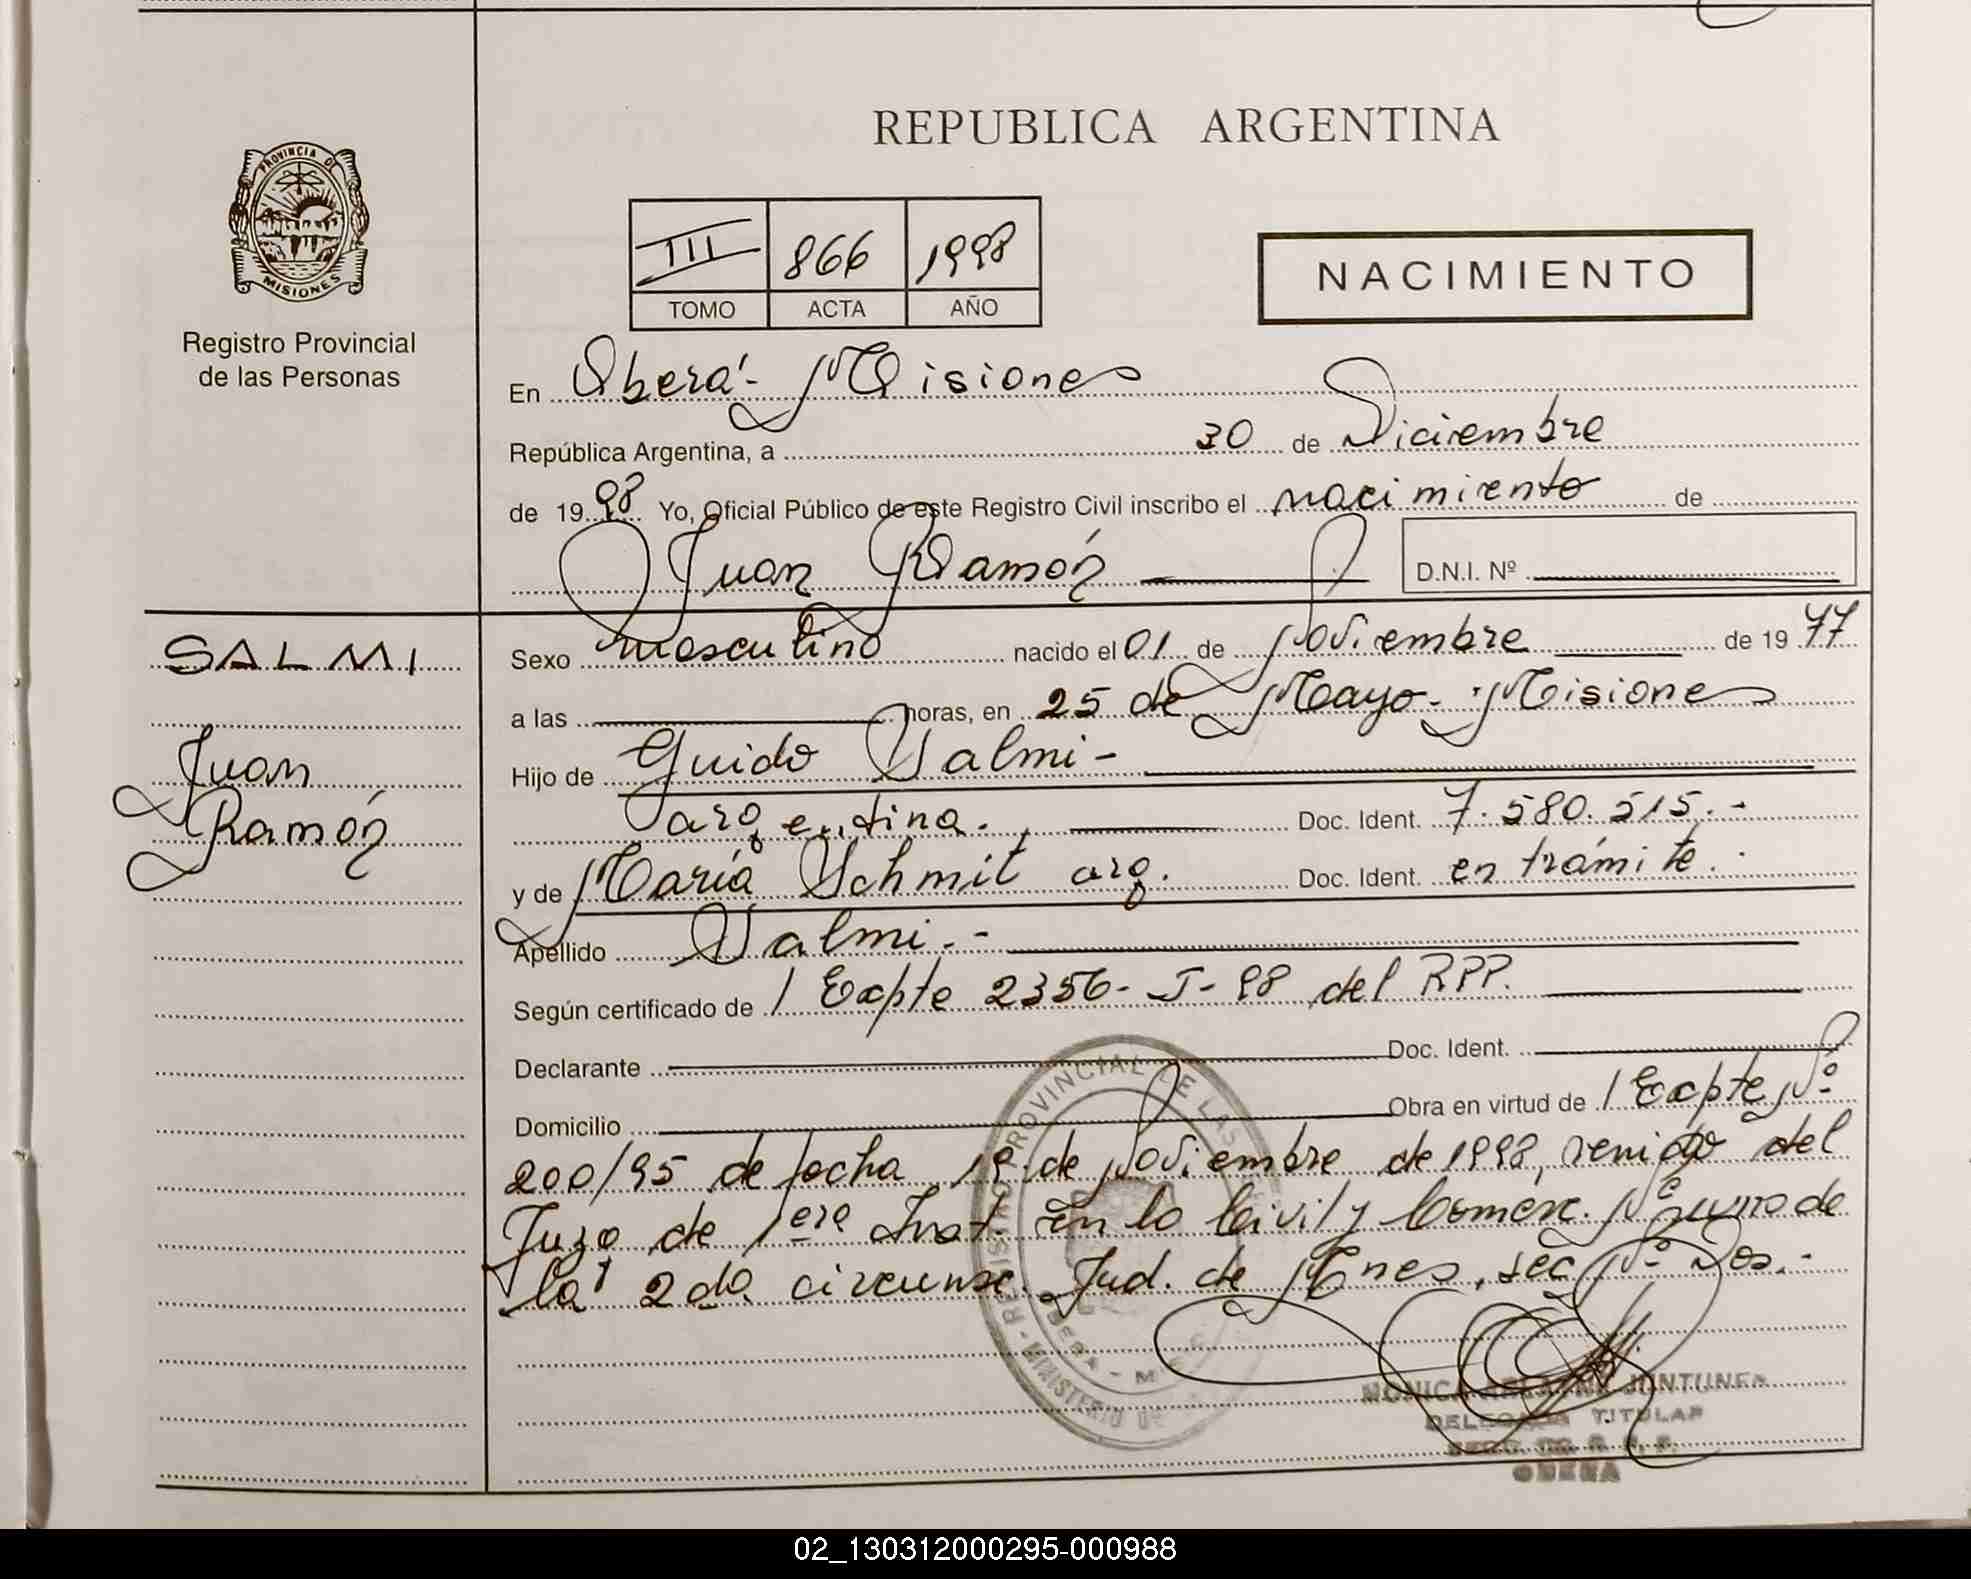 REPUBLICA ARGENTINA
PROVINCIA DE
MISIONES
Registro Provincial
de las Personas
III 866 1998
TOMO ACTA AÑO
NACIMIENTO
En Oberá - Misiones
República Argentina, a 30 de Diciembre
de 1998 Yo, Oficial Público de este Registro Civil inscribo el nacimiento de
Juan Ramón D.N.I. Nº
SALMI
Juan
Ramón
Sexo masculino nacido el 01 de Noviembre de 1977
a las horas, en 25 de Mayo - Misiones
Hijo de Guido Salmi -
argentina. Doc. Ident. 7.580.515.-
y de María Schmit arg. Doc. Ident. en trámite.
Apellido Salmi.-
Según certificado de / Expte 2356- J- 98 del RPP.
Declarante Doc. Ident.
Domicilio Obra en virtud de / Expte Nº
200/95 de fecha 19 de Noviembre de 1998, venido del
Juzg de 1era Inst. en lo Civil y Comerc. Nº uno de
la 2da circunsc. Jud. de Mnes, sec Nº Dos.-
REGISTRO PROVINCIAL DE LAS
MINISTERIO DE
MONICA JUNTUNEN
DELEGADA TITULAR
OBERA
02_130312000295-000988